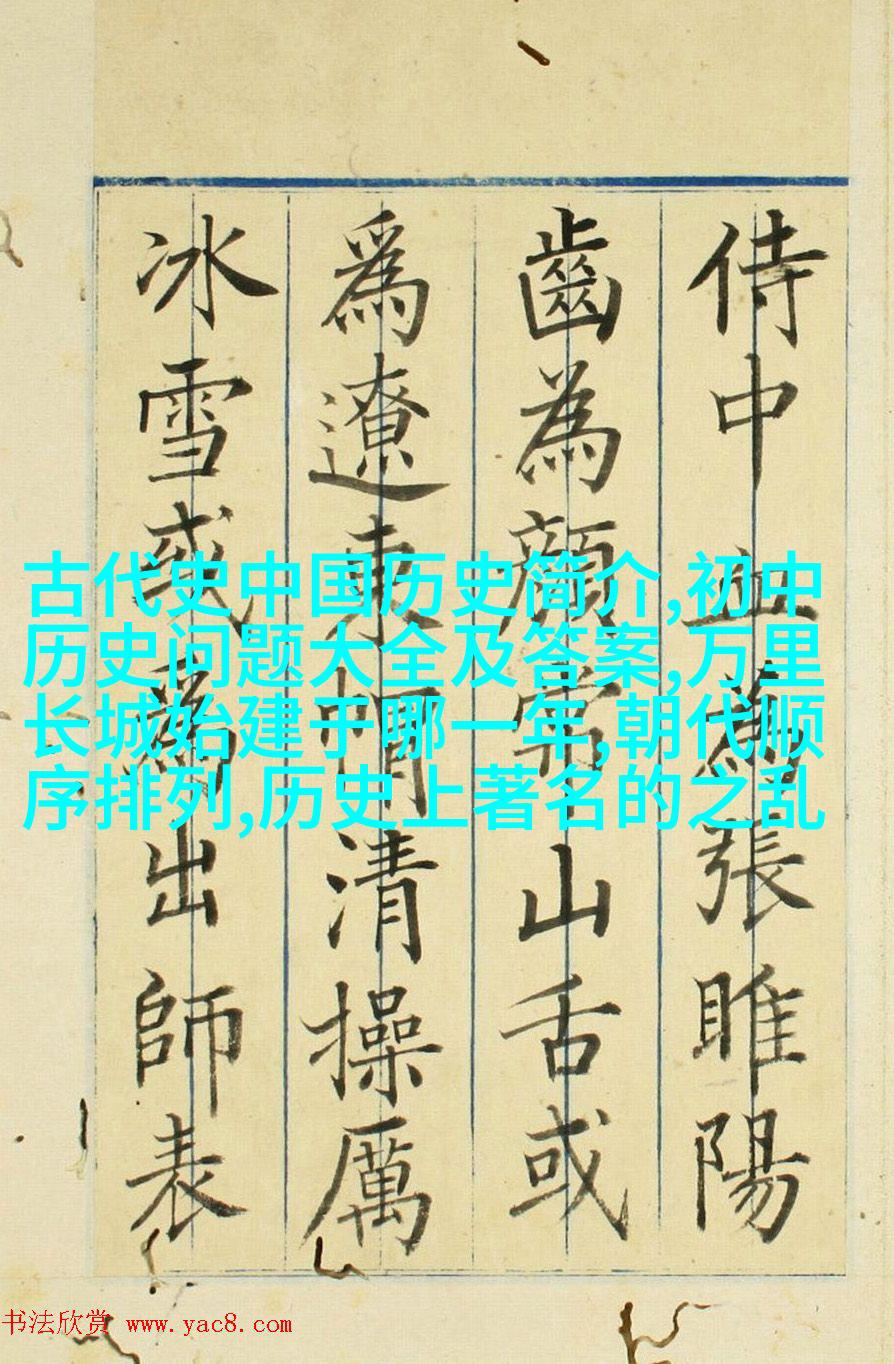 侍中血為張睢陽
齒為顏常山舌或
爲遼東帽清操厲
冰雪或為出師表
古代史中国历史简介,初中
历史问题大全及答案,万里
长城始建于哪一年,朝代顺
序排列,历史上著名的之乱
书法欣赏 www.yac8.com